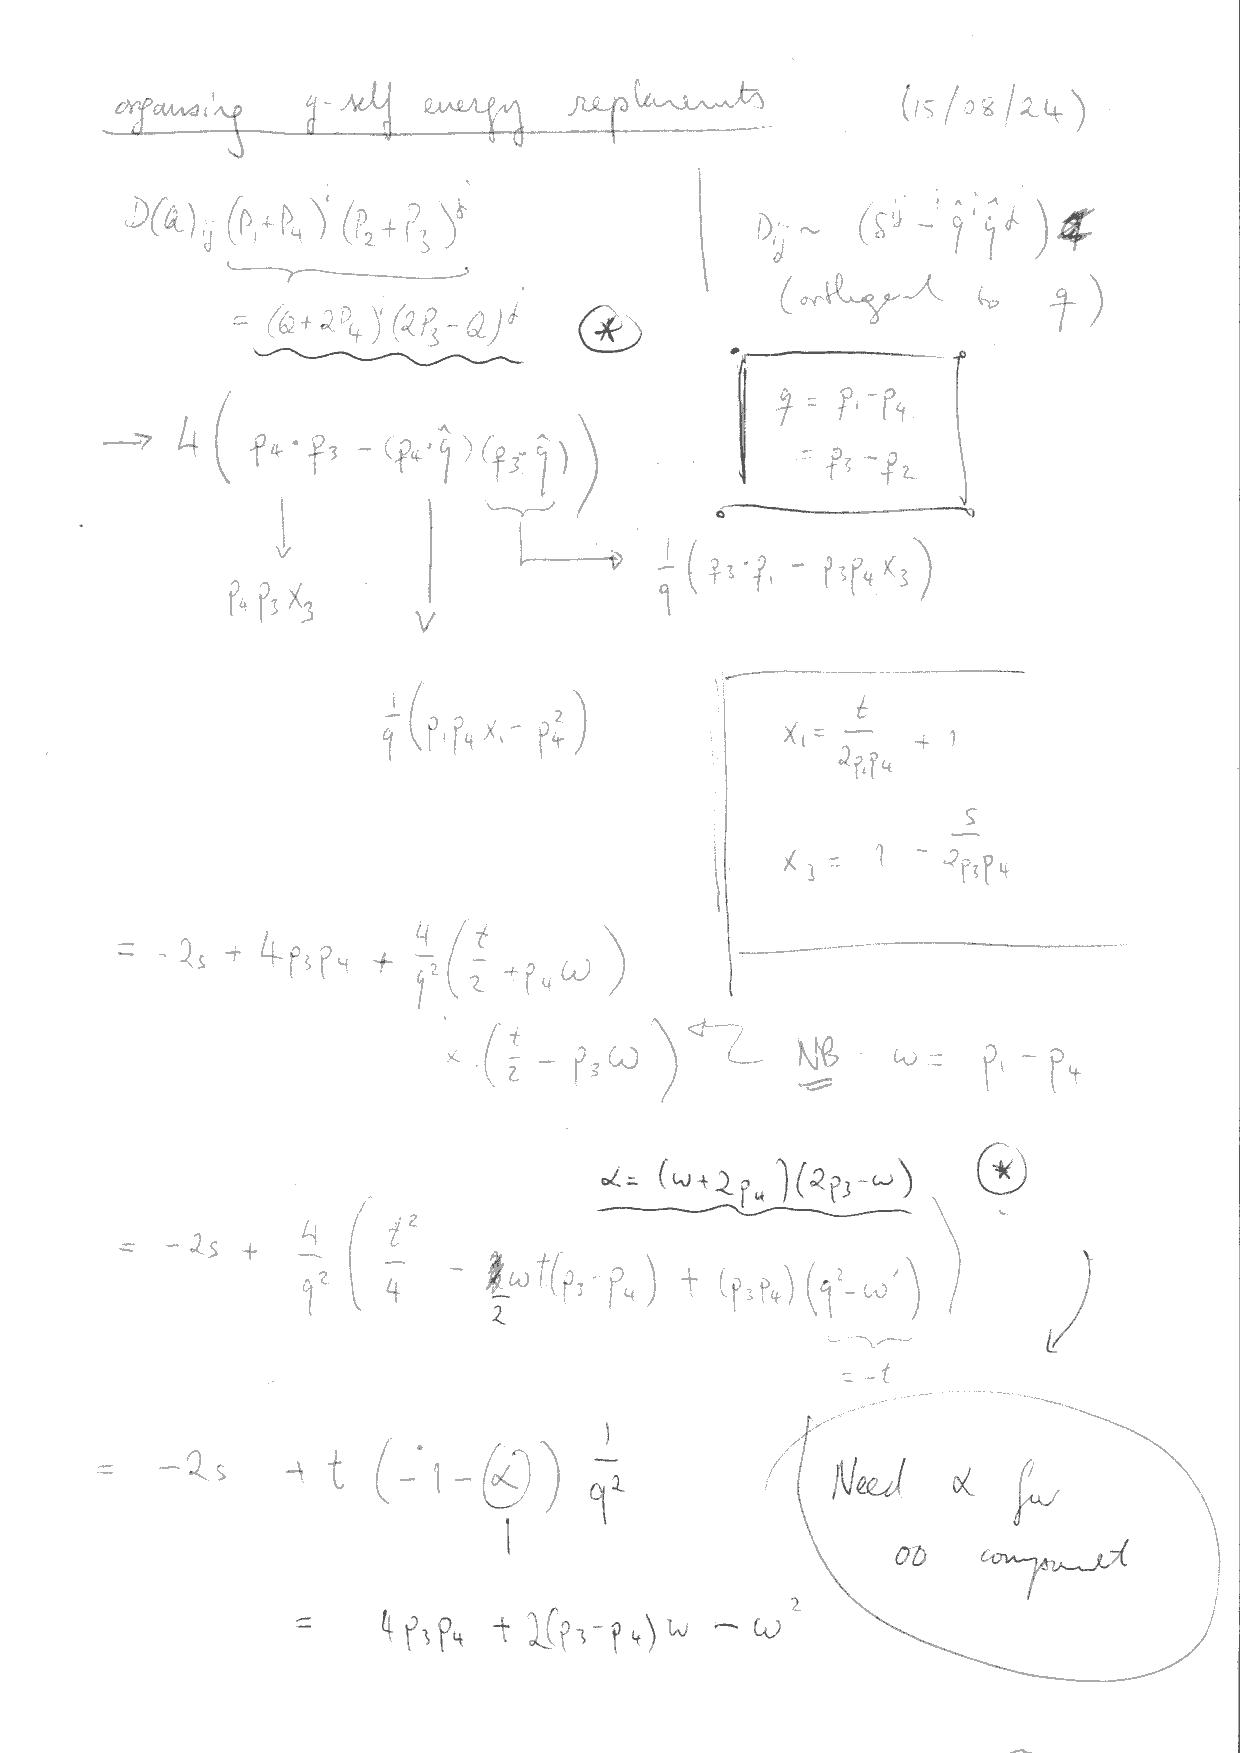 organising g-self energy replacements (15/08/24)
D(Q)_{ij} (P_1+P_4)^i (P_2+P_3)^j
= (Q+2P_4)^i (2P_3-Q)^j (*)
D_{ij} ~ (δ^{ij} - q̂^i q̂^j)
(orthogonal to q)
→ 4 ( p_4·p_3 - (p_4·q̂)(p_3·q̂) )
q = p_1-p_4
= p_3-p_2
p_4 p_3 x_3
1/q ( p_3·p_1 - p_3p_4 x_3 )
1/q ( p_1p_4 x_1 - p_4^2 )
x_1 = t/(2p_1p_4) + 1
x_3 = 1 - s/(2p_3p_4)
= -2s + 4p_3p_4 + 4/q^2 ( t/2 + p_4 ω )
× ( t/2 - p_3 ω )
NB ω = p_1 - p_4
α = (ω+2p_4)(2p_3-ω) (*)
= -2s + 4/q^2 ( t^2/4 - 1/2 ωt(p_3-p_4) + (p_3p_4)(q^2-ω^2) )
= -t
= -2s + t ( -1-α ) 1/q^2
= 4p_3p_4 + 2(p_3-p_4)ω - ω^2
Need α for
00 component